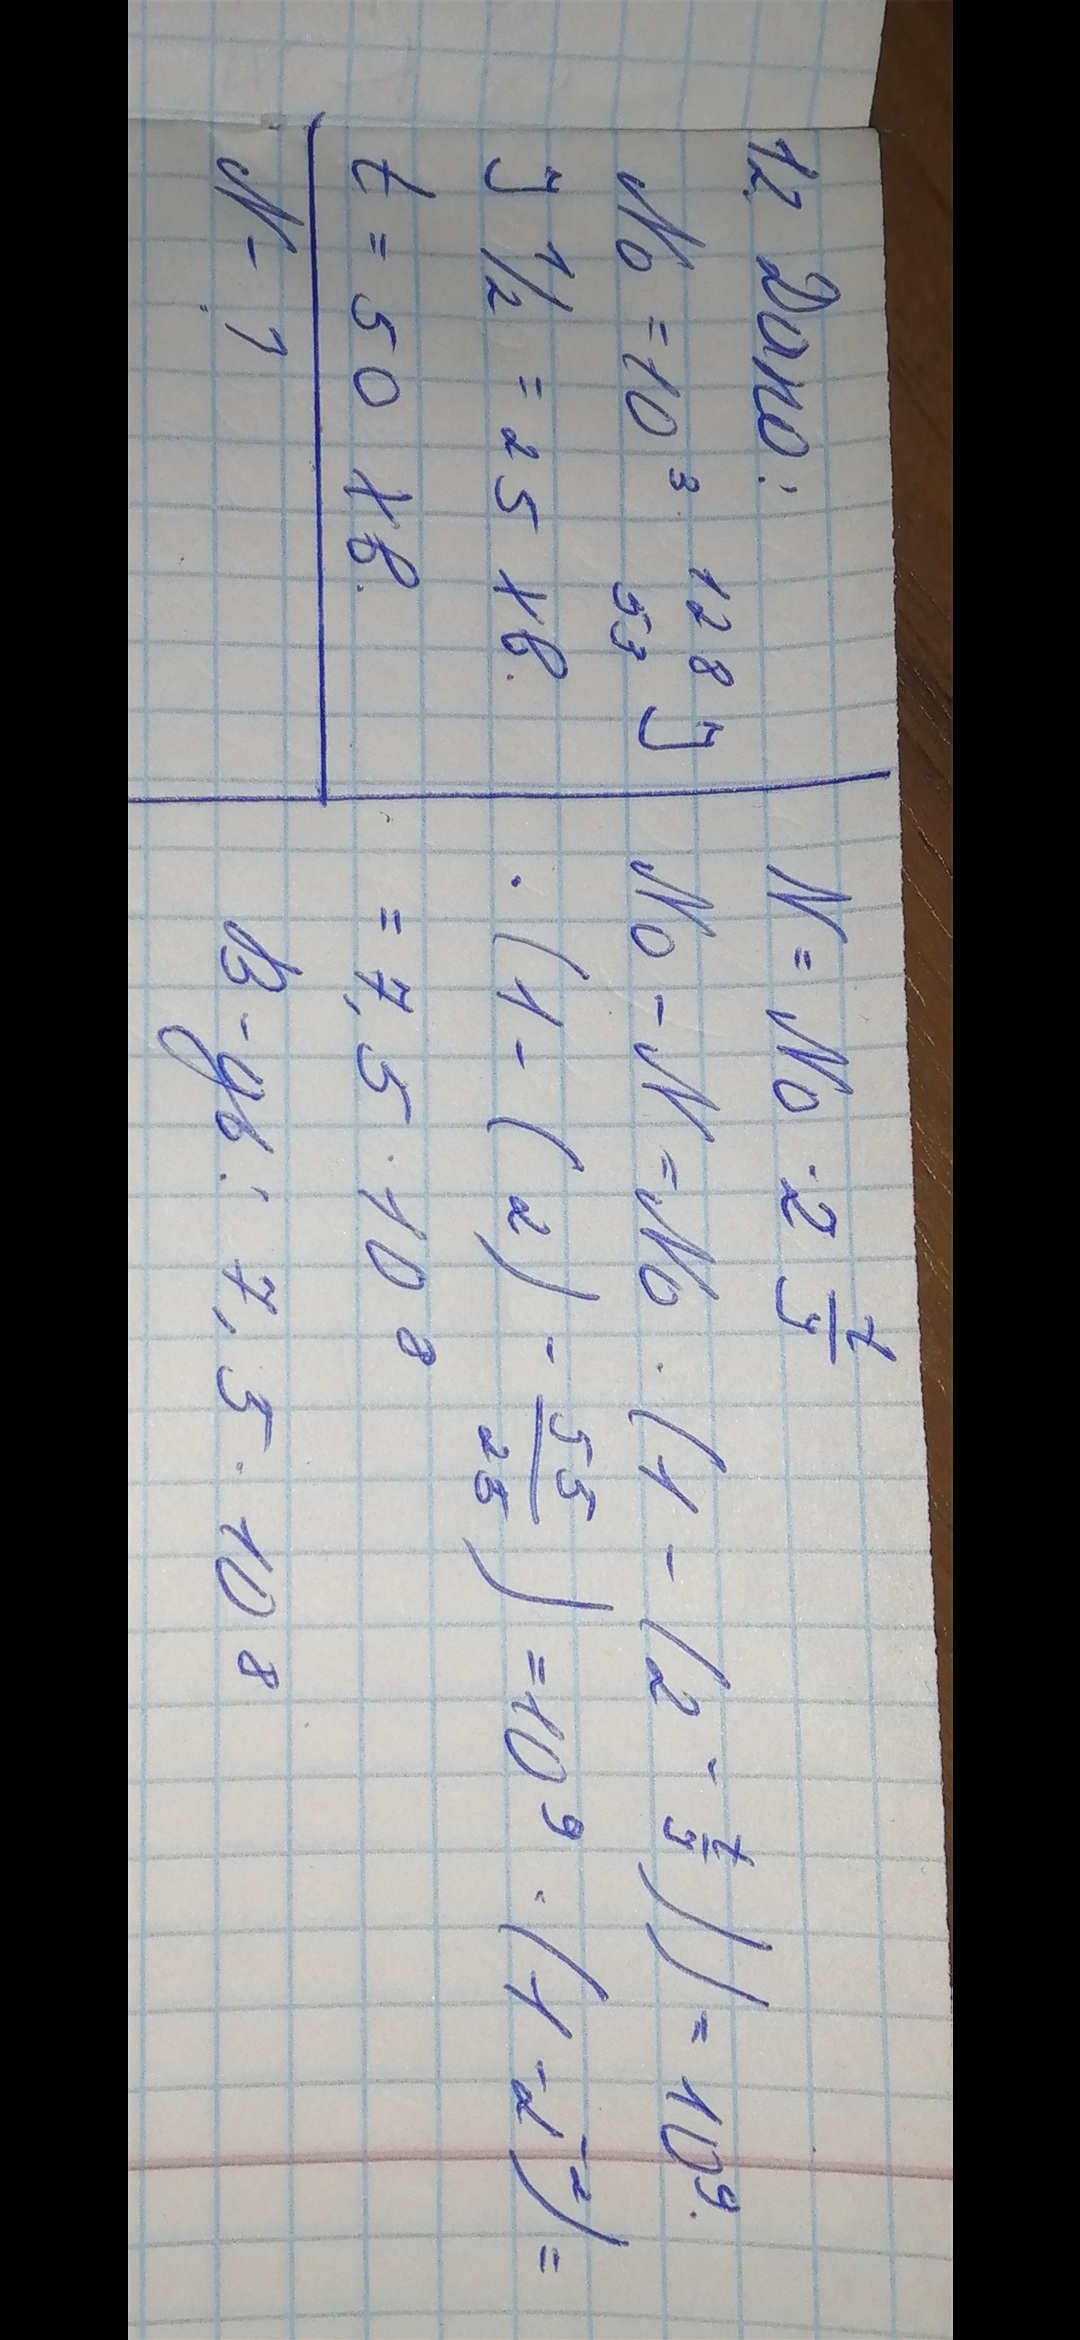 12 Дано:
N₀ = 10³ ¹²⁸₅₃ J
J 1/2 = 25 хв.
t = 50 хв.
N - ?
N = N₀ · 2 t/J
N₀ - N = N₀ · (1 - (2 - t/J)) = 10⁹ ·
· (1 - (2) - 55/25) = 10⁹ · (1 - 2⁻²) =
= 7,5 · 10⁸
В-дь: 7,5 · 10⁸